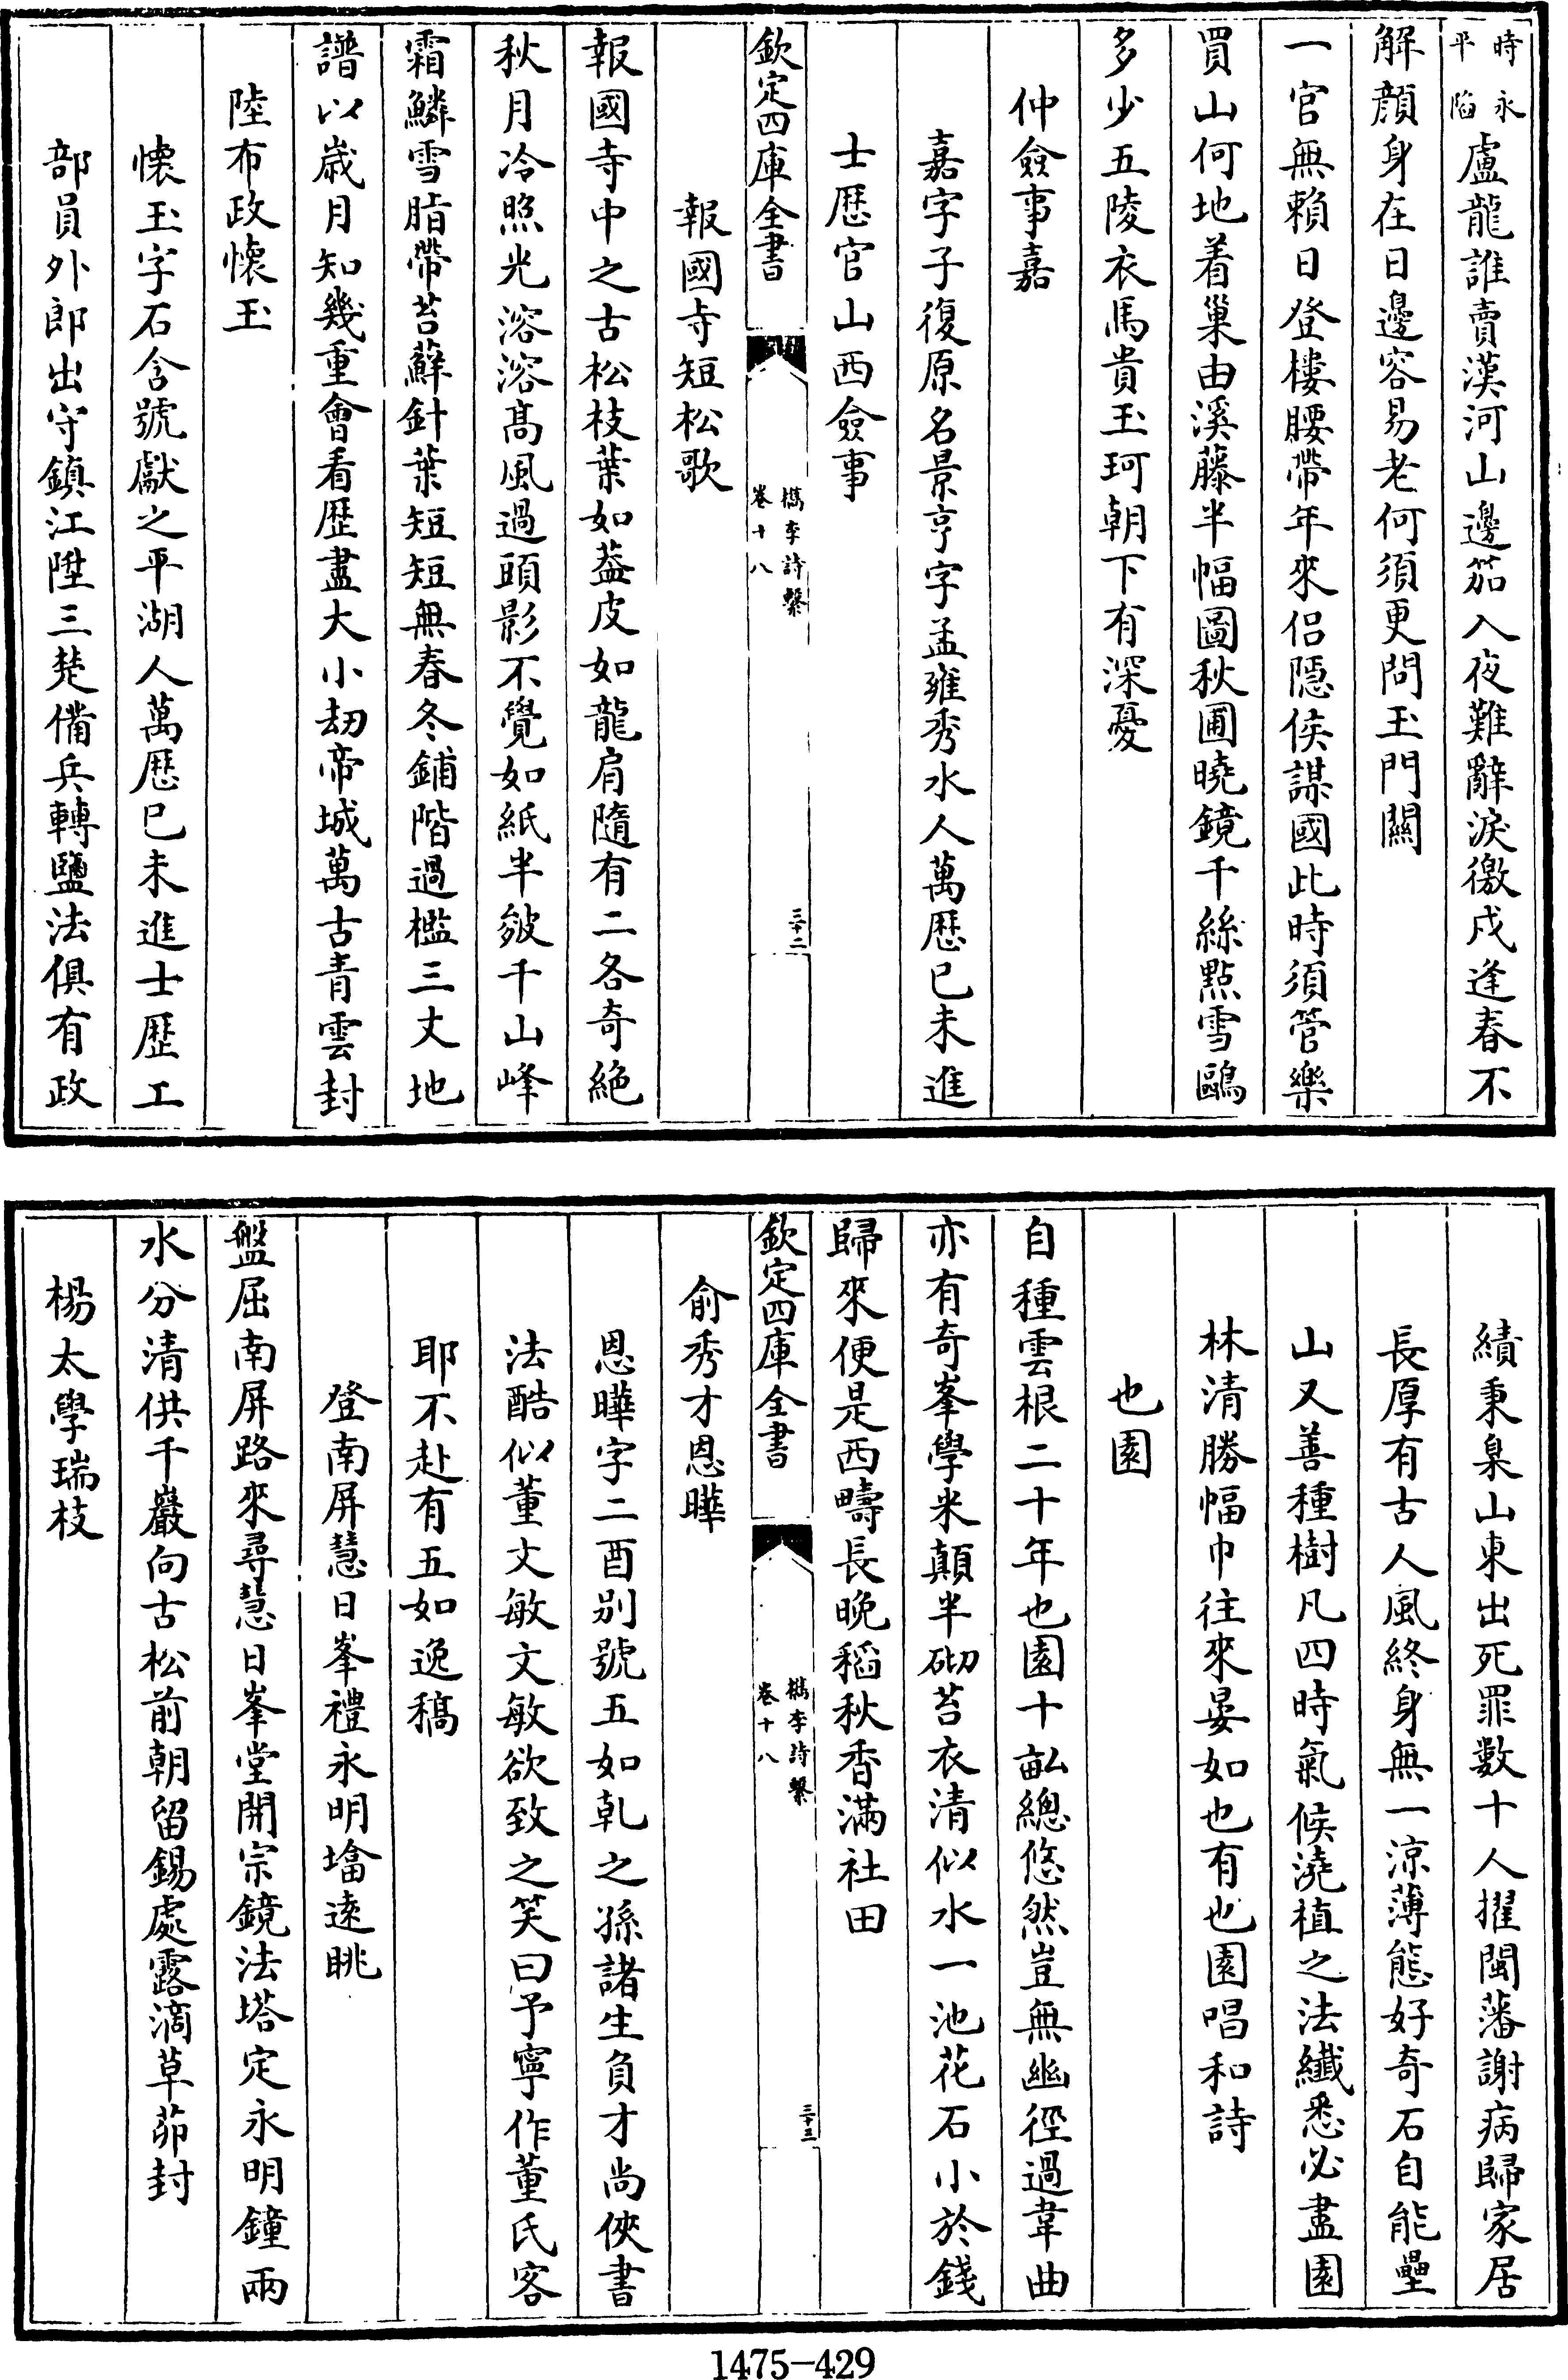 時永平陷盧龍誰賣漢河山邊笳入夜難辭淚徼戍逢春不
解顔身在日邊容易老何須更問玉門關
一官無賴日登樓腰帶年來侣隠侯謀國此時須管樂
買山何地着巢由溪藤半幅圖秋圃曉鏡千絲㸃雪鷗
多少五陵衣馬貴玉珂朝下有深憂
仲僉事嘉
嘉字子復原名景亨字孟雍秀水人萬厯已未進
士厯官山西僉事
欽定四庫全書
檇李詩繫
卷十八
三十二
報國寺短松歌
報國寺中之古松枝葉如葢皮如龍肩隨有二各奇絶
秋月冷照光溶溶髙風過頭影不覺如紙半皴千山峰
霜鱗雪脂帶苔蘚針葉短短無春冬鋪階過檻三丈地
譜以歳月知幾重會看歴盡大小刼帝城萬古青雲封
陸布政懐玉
懐玉字石含號獻之平湖人萬厯已未進士歴工
部員外郎出守鎮江陞三楚備兵轉鹽法俱有政
績秉臬山東出死罪數十人擢閩藩謝病歸家居
長厚有古人風終身無一涼薄態好奇石自能壘
山又善種樹凡四時氣候澆植之法纎悉必盡園
林清勝幅巾往來晏如也有也園唱和詩
也園
自種雲根二十年也園十畝總悠然豈無幽徑過韋曲
亦有奇峯學米顛半砌苔衣清似水一池花石小於錢
歸來便是西疇長晚稻秋香滿社田
欽定四庫全書
檇李詩繫
卷十八
三十三
俞秀才恩曄
恩曄字二酉别號五如乹之孫諸生負才尚俠書
法酷似董文敏文敏欲致之笑曰予寧作董氏客
耶不赴有五如逸稿
登南屏慧日峯禮永明墖逺眺
盤屈南屏路來尋慧日峯堂開宗鏡法塔定永明鐘兩
水分清供千巖向古松前朝留錫處露滴草茆封
楊太學瑞枝
1475-429